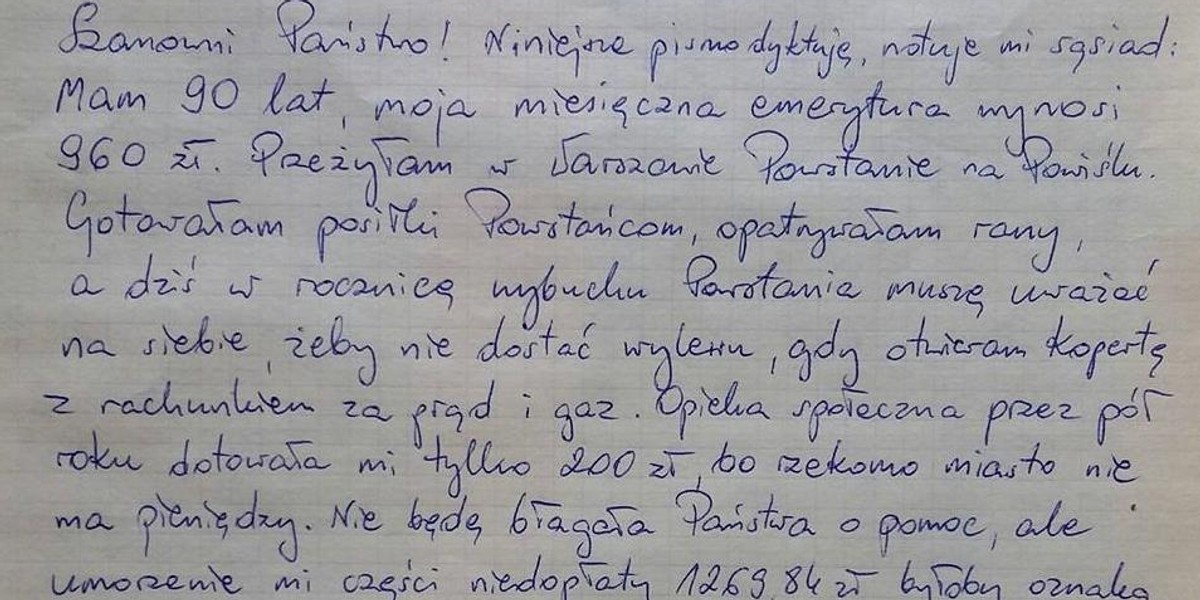 Szanowni Państwo! Niniejsze pismo dyktuję, notuje mi sąsiad:
Mam 90 lat, moja miesięczna emerytura wynosi
960 zł. Przeżyłam w Warszawie Powstanie na Powiślu.
Gotowałam posiłki Powstańcom, opatrywałam rany,
a dziś w rocznicę wybuchu Powstania muszę uważać
na siebie, żeby nie dostać wylewu, gdy otwieram kopertę
z rachunkiem za prąd i gaz. Opieka społeczna przez pół
roku dotowała mi tylko 200 zł, bo rzekomo miasto nie
ma pieniędzy. Nie będę błagała Państwa o pomoc, ale
umorzenie mi części niedopłaty 1269,84 zł byłoby oznaką